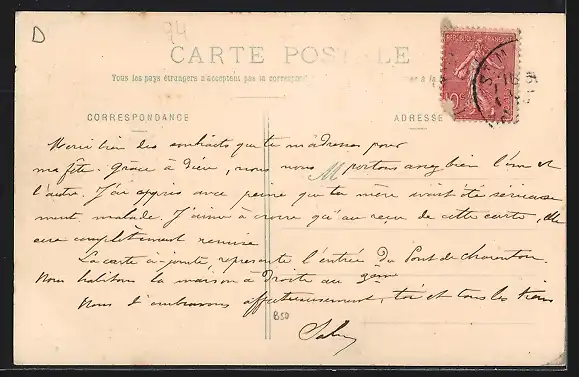 D
94
REPUBLIQUE FRANÇAISE
CARTE POSTALE
Tous les pays étrangers n'acceptent pas la correspond
er à la
CORRESPONDANCE
ADRESSE
Merci bien des souhaits que tu m'adresses pour
ma fête. Grâce à Dieu, nous nous M portons assez bien l'un et
l'autre. J'ai appris avec peine que ta mère avait été sérieuse
ment malade. J'aime à croire qu'au reçu de cette carte, elle
sera complètement remise
La carte ci-jointe, représente l'entrée du Pont de Charenton.
Nous habitons la maison à droite au 3ème
Nous t'embrassons affectueusement, toi et tous les tiens
B50